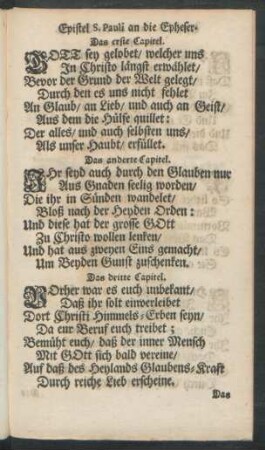 Epistel S. Pauli an die Epheser.
Das erste Capitel.
GOTT sey gelobet/ welcher uns
In Christo längst erwählet/
Bevor der Grund der Welt gelegt/
Durch den es uns nicht fehlet
An Glaub/ an Lieb/ und auch an Geist/
Aus dem die Hülfe quillet:
Der alles/ und auch selbsten uns/
Als unser Haubt/ erfüllet.
Das anderte Capitel.
IHr seyd auch durch den Glauben nur
Aus Gnaden seelig worden/
Die ihr in Sünden wandelet/
Bloß nach der Heyden Orden:
Und diese hat der grosse GOtt
Zu Christo wollen lenken/
Und hat aus zweyen Eins gemacht/
Um Beyden Gunst zuschenken.
Das dritte Capitel.
VOrher war es euch unbekant/
Daß ihr solt einverleibet
Dort Christi Himmels-Erben seyn/
Da eur Beruf euch treibet;
Bemüht euch/ daß der inner Mensch
Mit GOtt sich bald vereine/
Auf daß des Heylands Glaubens-Kraft
Durch reiche Lieb erscheine.
Das